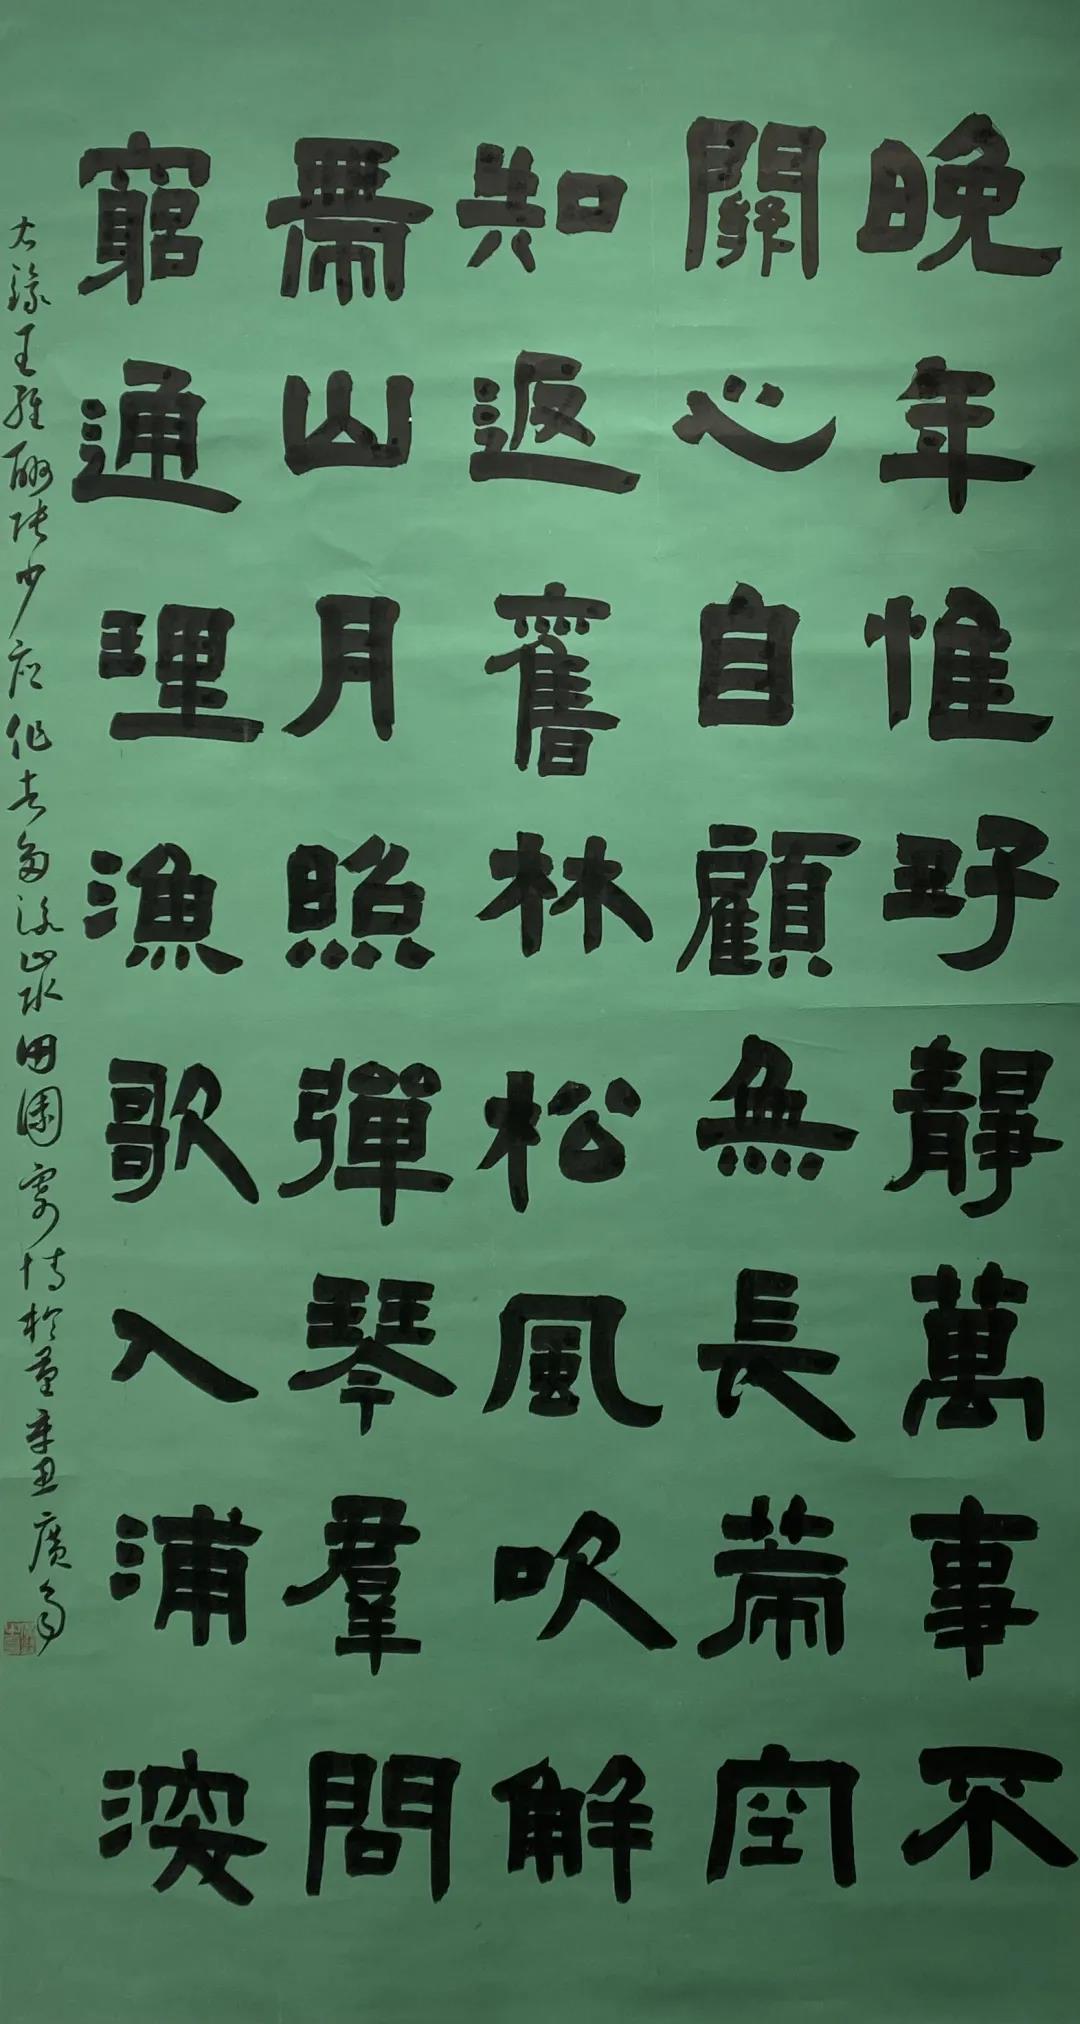 晚年惟好靜萬事不
關心自顧無長策空
知返舊林松風吹解
帶山月照彈琴羣問
窮通理漁歌入浦深
右錄王維酬張少府作者多詠山水田園寄情於辛丑廣